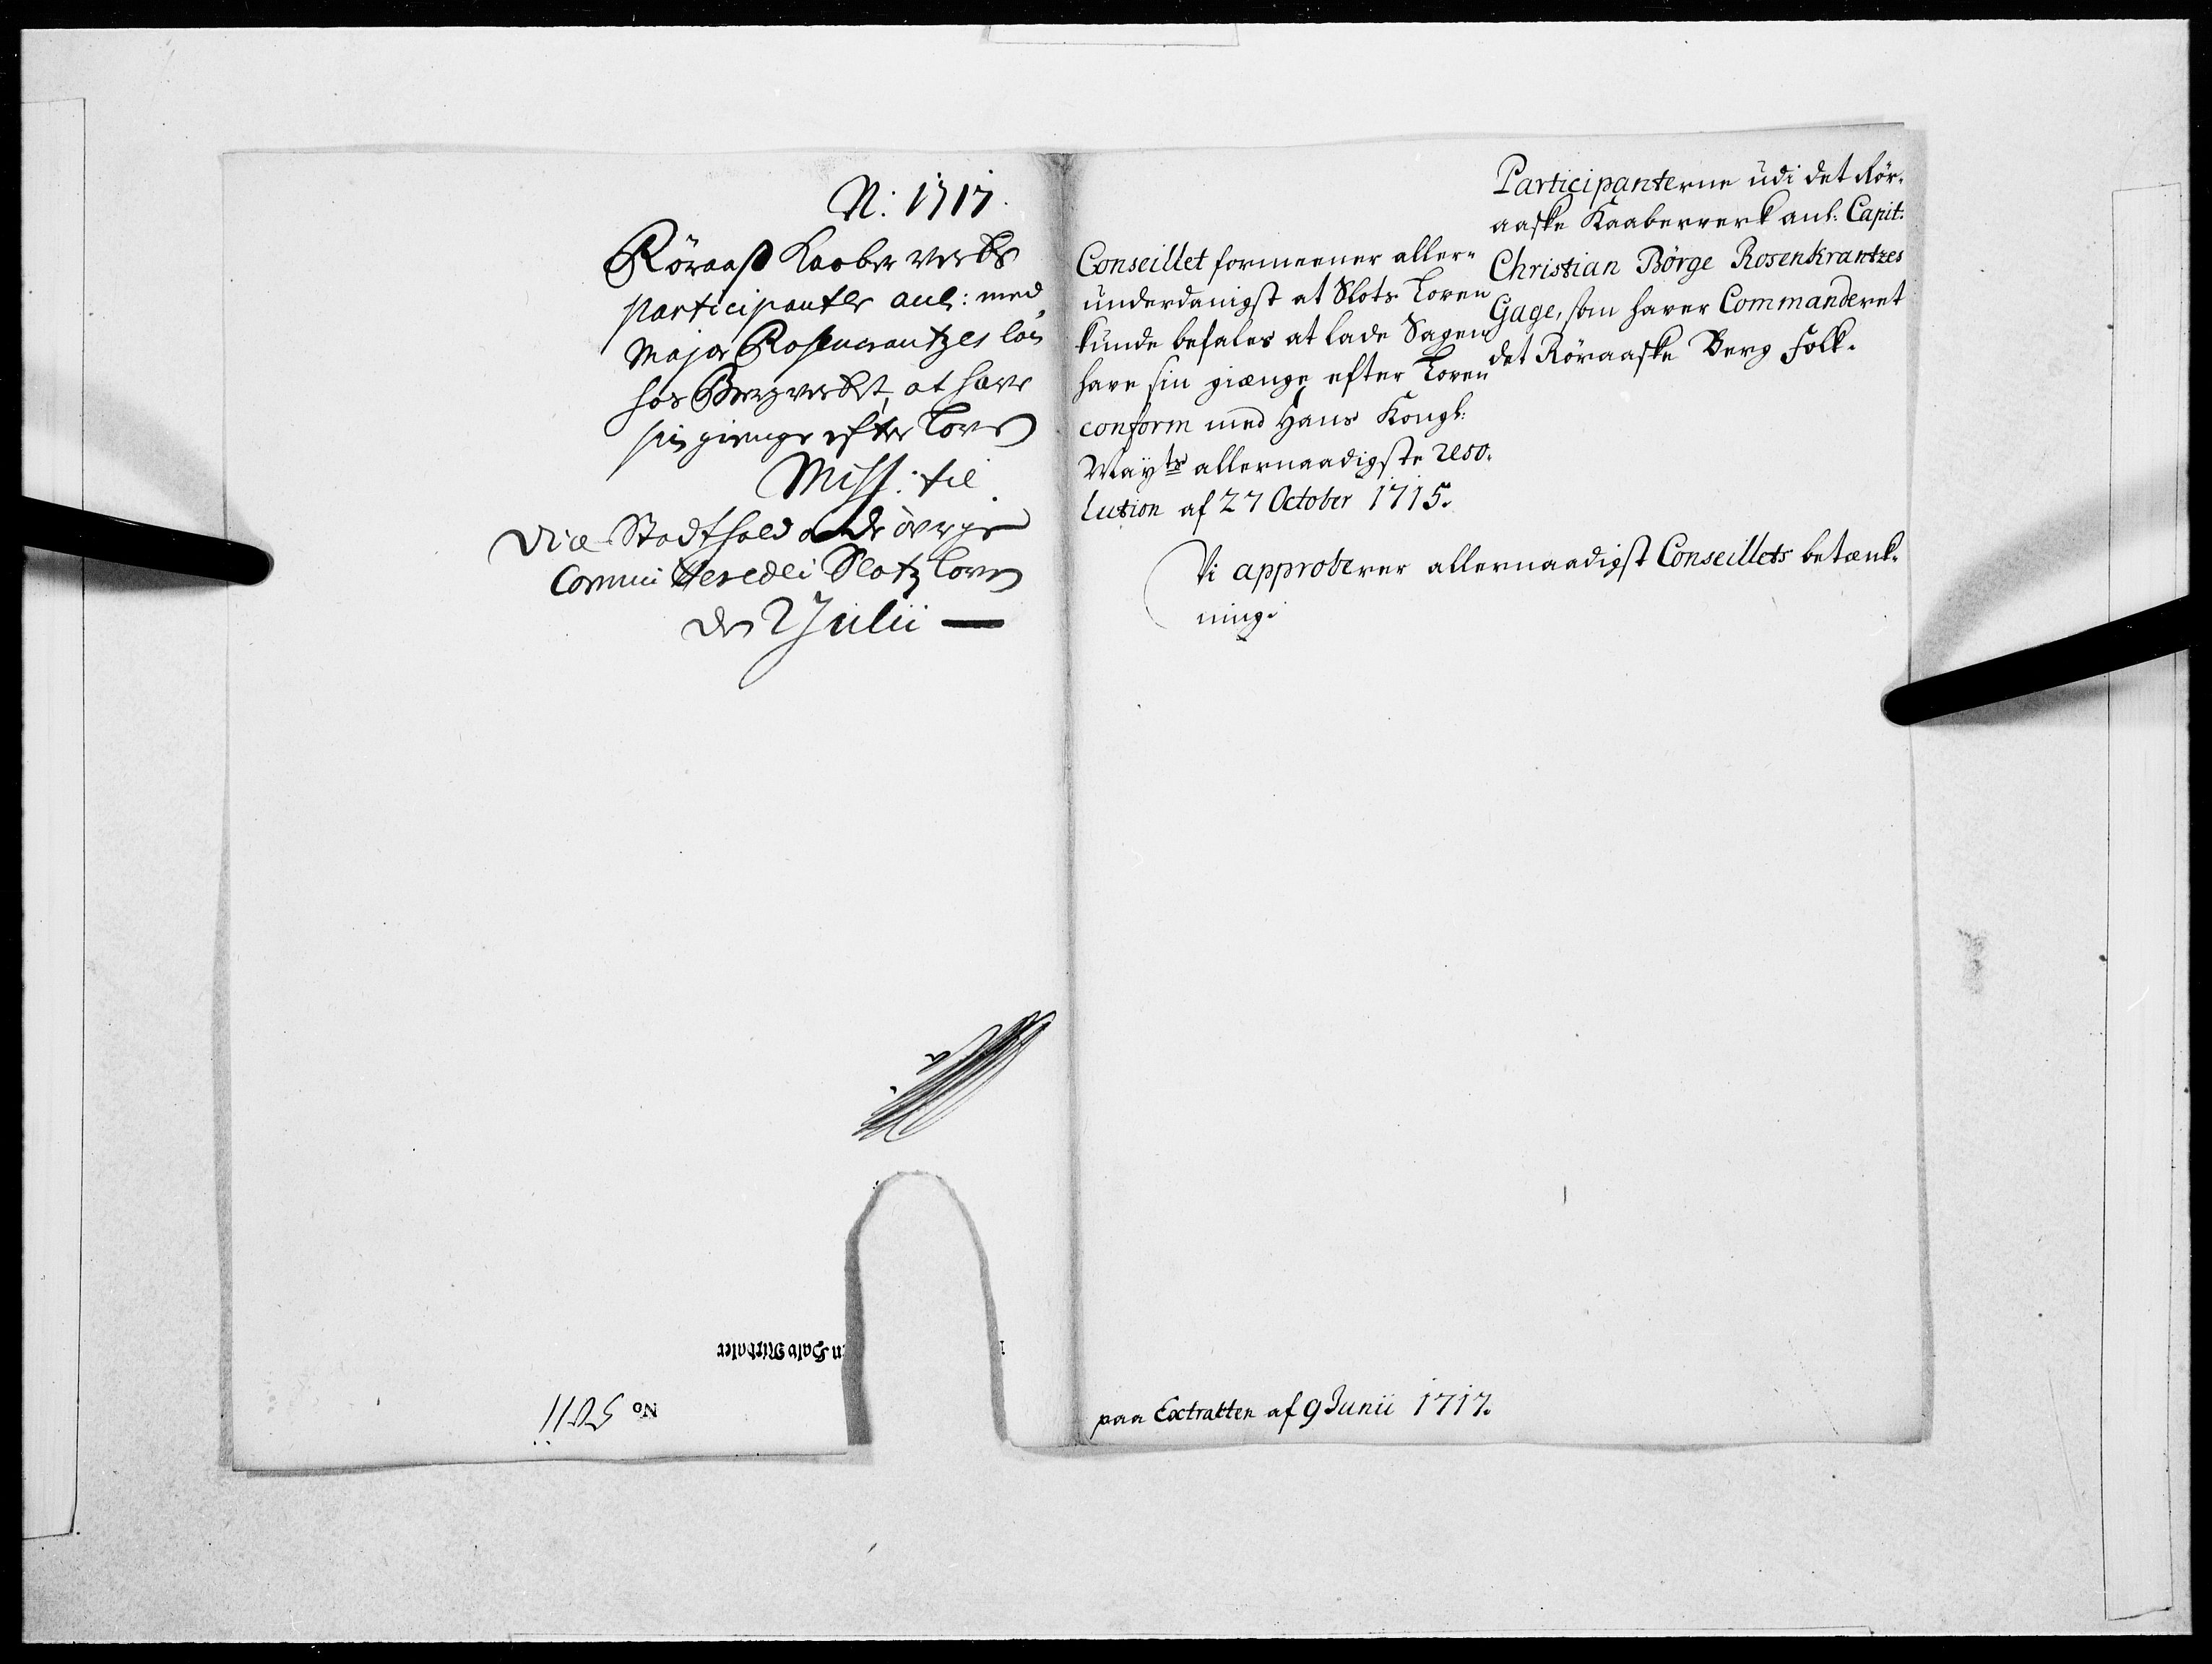 N: 1717.
Röraaß Kaaber verks
participanter anl: med
Major Rosencrantzes løn
hos Bergverket, at have
sin gienge efter Loven
Miss: til
Vice Stadthold: og de övrige
Committerede i Slotz Loven
den 2 Julii —
en Halv Rixdaler
No 5211
Participanterne udi det Rör-
aaske Kaaberverk anl: Capit:
Christian Börge Rosenkrantzes
Gage, som haver Commanderet
det Röraaske Berg Folk.
Conseillet formeener aller-
underdanigst at Slots Loven
kunde befales at lade Sagen
have sin giænge efter Loven
conform med Hans Kongl:
Mayts allernaadigste reso-
lution af 27 October 1715.
Vi approberer allernaadigst Conseillets betænk-
ning.
paa Extracten af 9 Junii 1717.